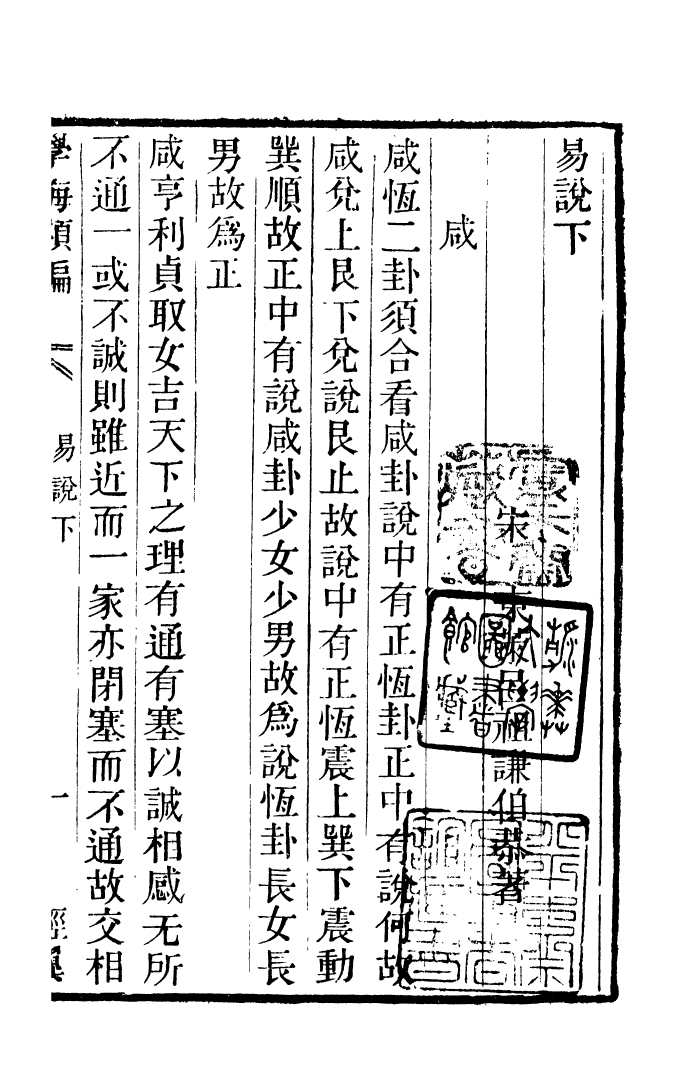 易說下
宋 東萊呂祖謙伯恭著
咸
咸恆二卦須合看咸卦說中有正恆卦正中有說何故
咸兌上艮下兌說艮止故說中有正恆震上巽下震動
巽順故正中有說咸卦少女少男故爲說恆卦長女長
男故爲正
咸亨利貞取女吉天下之理有通有塞以誠相感无所
不通一或不誠則雖近而一家亦閉塞而不通故交相
學海類編 易說下 一 經翼